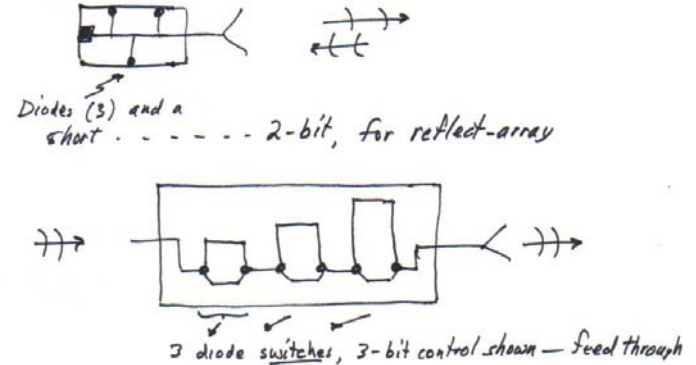 Diodes (3) and a
short - - - - - - 2-bit, for reflect-array
3 diode switches, 3-bit control shown — feed through